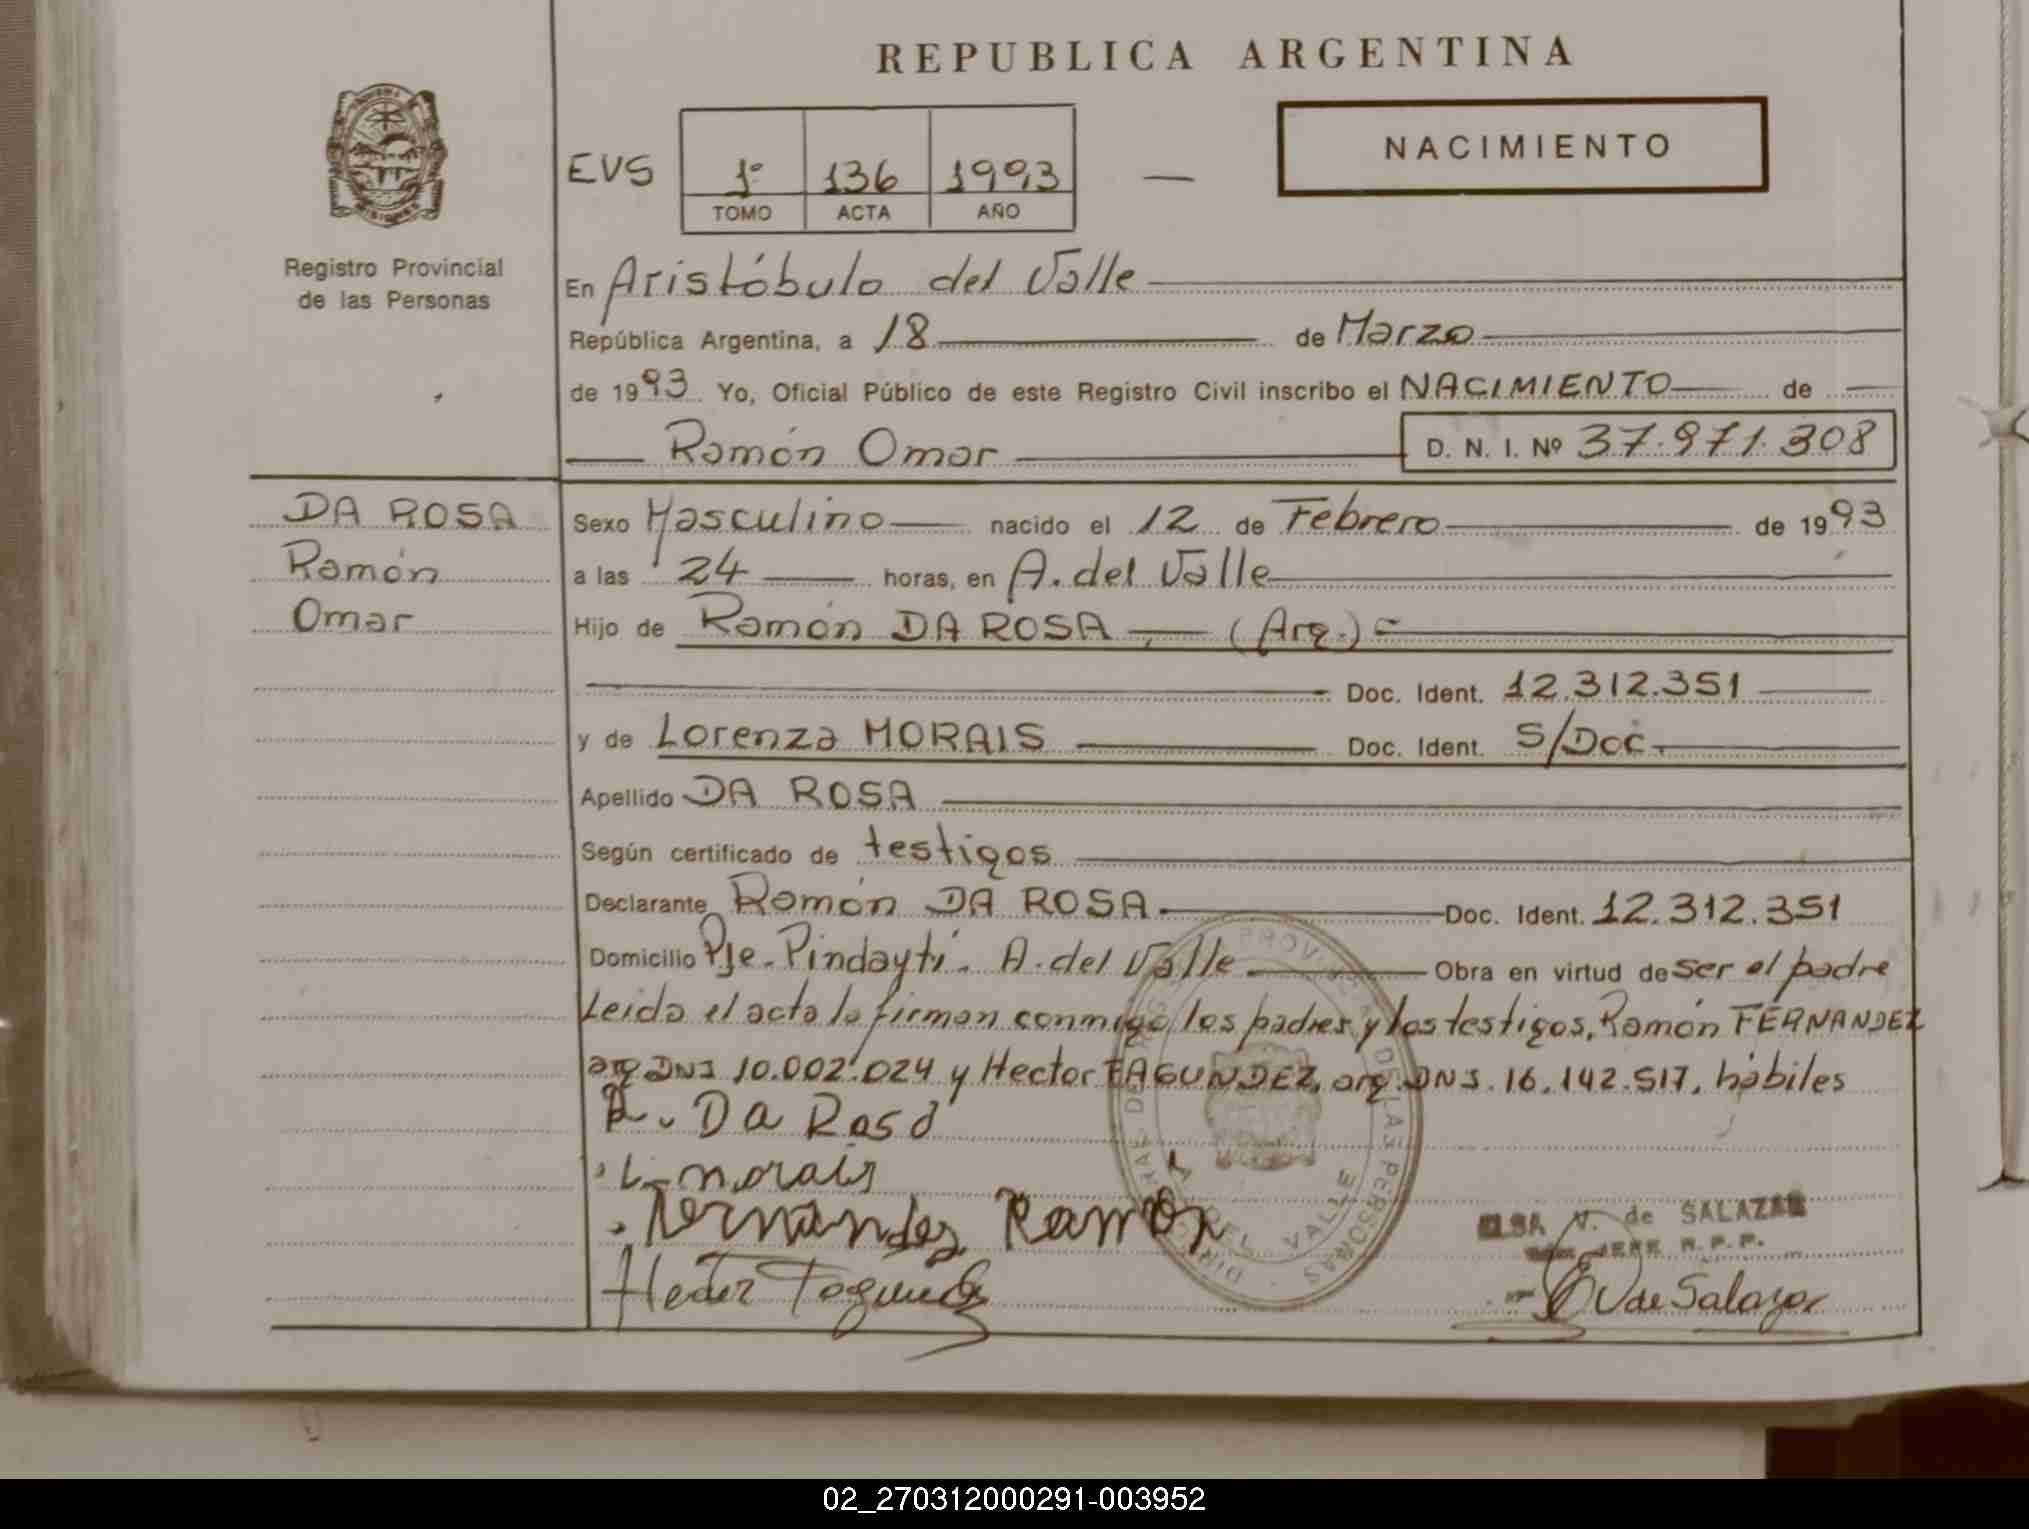 REPUBLICA ARGENTINA
NACIMIENTO
EVS 1º 136 1993 —
TOMO ACTA AÑO
Registro Provincial
de las Personas
En Aristóbulo del Valle
República Argentina, a 18 de Marzo
de 1993 Yo, Oficial Público de este Registro Civil inscribo el NACIMIENTO de
Ramón Omar D. N. I. Nº 37.971.308
DA ROSA
Ramón
Omar
Sexo Masculino nacido el 12 de Febrero de 1993
a las 24 horas, en A. del Valle
Hijo de Ramón DA ROSA (Arg.)
Doc. Ident. 12.312.351
y de Lorenza MORAIS Doc. Ident. S/Doc.
Apellido DA ROSA
Según certificado de testigos
Declarante Ramón DA ROSA Doc. Ident. 12.312.351
Domicilio Pje. Pindaytí. A. del Valle Obra en virtud de ser el padre
Leida el acta la firman conmigo los padres y los testigos, Ramón FERNANDEZ
arg DNI 10.002.024 y Hector FAGUNDEZ, arg. DNI. 16.142.517, hábiles
R. Da Rosa
L. morais
Fernandez Ramon
Hector Fagundez
DEL VALLE
DE LAS PERSONAS
ELSA V. de SALAZAR
JEFE R.P.P.
E V de Salazar
02_270312000291-003952